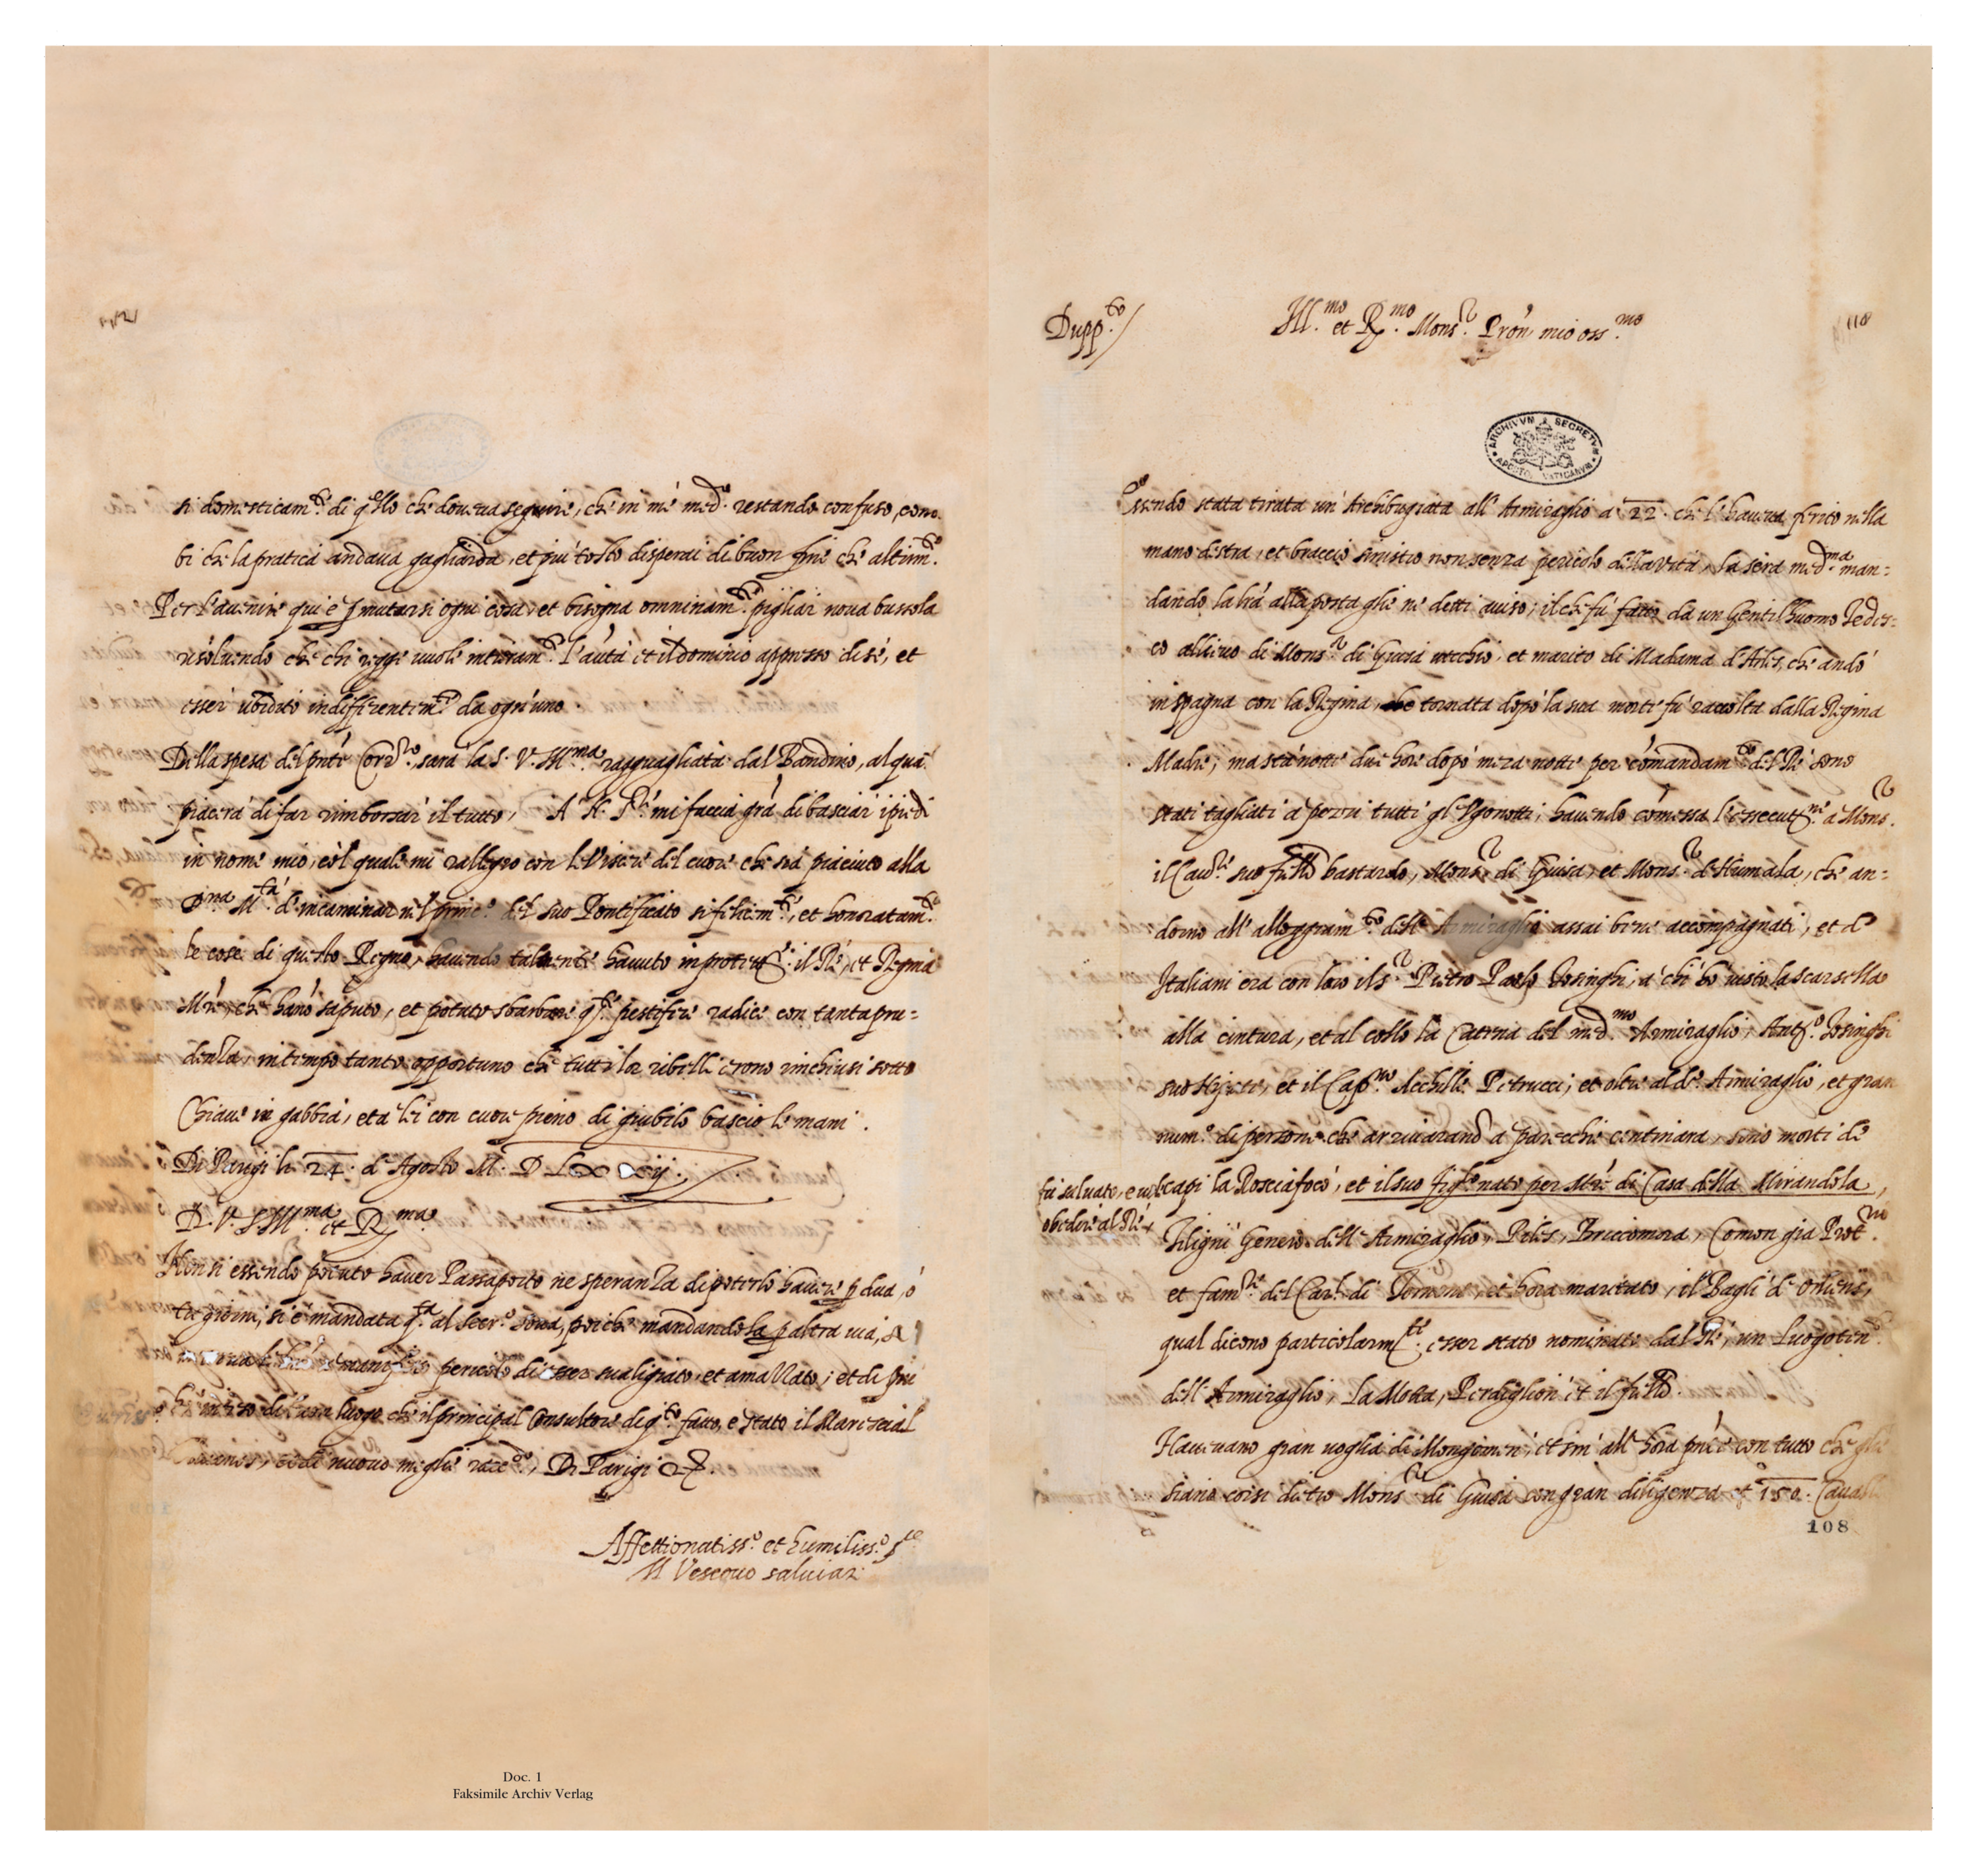 si domesticam.te di qllo che doueua seguire, che in me med.o restando confuso, conob-
bi che la pratica andaua gagliarda, et piu tosto disperai di buon fine che altrim.te
Per l'auenire qui è p mutarsi ogni cosa, et bisogna omninam.te pigliar noua bussola
risoluendo che chi regge uuole interam.te l'auta et il dominio appresso di sé, et
esser ubidito indifferentem.te da ogn'uno
Della spesa del pnte Corr.ro sarà la S. V. Ill.ma ragguagliata dal Bandino, al qual
piacerà di far rimborsar il tutto, A N. S.re mi faccia grã di basciar i piedi
in nome mio, col quale mi rallegro con le Viscere del cuore che sia piaciuto alla
D.na M.tà d'incaminar nel princ.o del suo Pontificato si felicem.te, et honoratam.te
le cose di questo Regno, hauendo talmente hauuto in protett.e il Ré, et Regina
Mré, che hanò saputo, et potuto sbarbare qste pestifere radici con tanta pru=
denza, in tempo tanto opportuno che tutti lor ribelli erono rinchiusi sotto
Chiaue in gabbia, et a lei con cuore pieno di giubilo bascio le mani.
Di Parigi li 24. d'Agosto M. D LXXij.
D. V. S. Ill.ma et R.ma
Non si essendo potuto hauer Passaporto ne speranza di poterlo hauere p dua, ò
tre giorni, si è mandata qsta al Secr.o poiche mandandola p altra uia,
manifesto pericolo di esser sualigiato, et amazzato; et di piu
ho inteso di buon luogo che il principal Consultore di q.to fatto, e stato il Marescial
et di nuouo me gli racc.do, Di Parigi
Affettionatiss.o et humiliss.o s.re
Il Vescouo saluiati
Doc. 1
Faksimile Archiv Verlag
Dupp.to /
Ill.mo et R.mo Mons.r Pron mio oss.mo
118
ARCHIVVM SECRETVM APOSTOL. VATICANVM
Essendo stata tirata un'Archibugiata all'Armiraglio a 22. che l'haueua ferito nella
mano destra, et braccio sinistro non senza pericolo della vita, la sera med.ma man=
dando la lrá alla posta glie ne detti auiso; il che fú fatto da un Gentilhuomo Tedes=
co allieuo di Mons.r di Guisa uecchio, et marito di Madama d'Arles, che andò
in spagna con la Regina, che tornata dopò la sua morte fu raccolta dalla Regina
Madre; ma sta notte due hore dopò meza notte per comandam.to del Ré sono
stati tagliati a pezzi tutti gl'Vgonotti, hauendo comessa l'essecut.ne a Mons.r
il Cau.re suo fratello bastardo, Mons.r di Guisa, et Mons.r d'Humala, che an=
dorno all'alloggiam.to dell'Armiraglio assai bene accompagnati, et d
Italiani era con loro il s.r Pietro Paolo Tosinghi, a chi hò uisto la scarsella
alla cintura, et al collo la Catena del med.mo Armiraglio, Ant.o Tosinghi
suo Nipote, et il Cap.no Achille Petrucci, et oltre al d.o Armiraglio, et gran
num.o di persone che arriuarano a parecchie centinara, sono morti de
capi la Rosciafocò, et il suo figl.o nato per Mré di Casa della Mirandola,
fu saluato, e uolse
obedire al Ré
Tiligni Genero dell'Armiraglio, Piles, Briccomora, Comon gia Prot.rio
et fam.re del Car.l di Tornone, et hora maritato, il Bagli d'Orliens,
qual dicono particolarm.te esser stato nominato dal Ré, un Luogoten.te
dell'Armiraglio, La Motta, Perdiglion et il fratello.
Haueuano gran uoglia di Mongomeri, et sin'all'hora pnte con tutto che gli
siano corsi dietro Mons.r di Guisa con gran diligenza et 150. Caualli
108